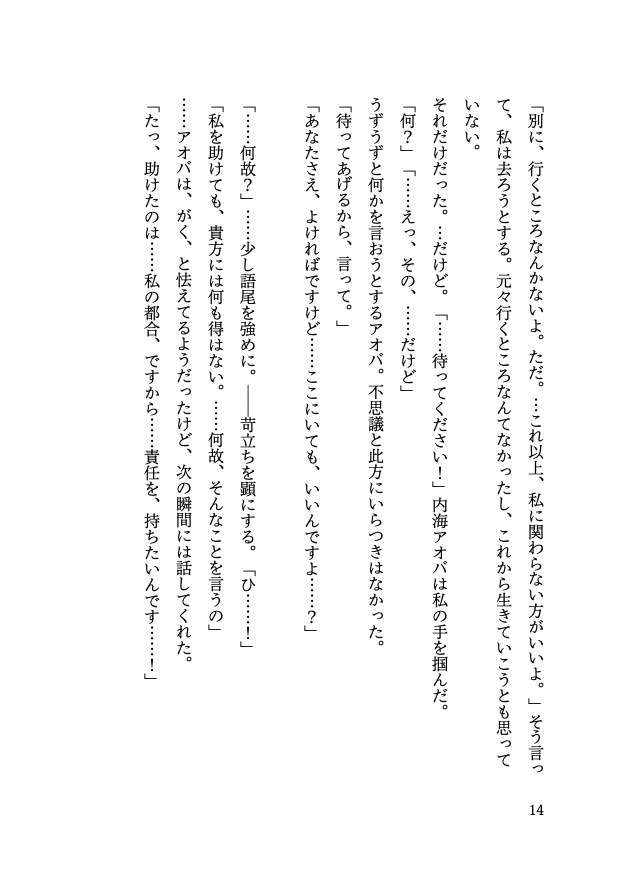 「別に、行くところなんかないよ。ただ。…これ以上、私に関わらない方がいいよ。」そう言っ
て、私は去ろうとする。元々行くところなんてなかったし、これから生きていこうとも思って
いない。
それだけだった。…だけど。「……待ってください！」内海アオバは私の手を掴んだ。
「何？」「……えっ、その、……だけど」
うずうずと何かを言おうとするアオバ。不思議と此方にいらつきはなかった。
「待ってあげるから、言って。」
「あなたさえ、よければですけど……ここにいても、いいんですよ……？」
「……何故？」……少し語尾を強めに。――苛立ちを顕にする。「ひ……！」
「私を助けても、貴方には何も得はない。……何故、そんなことを言うの」
……アオバは、がく、と怯えてるようだったけど、次の瞬間には話してくれた。
「たっ、助けたのは……私の都合、ですから……責任を、持ちたいんです……！」
14